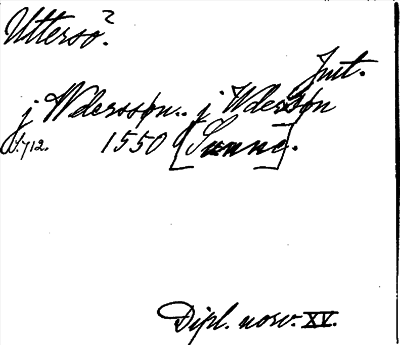 Uttersø?
Jnt.
j Wdersson.. j Wdersøn
S. 712. 1550 [Sunne].
Dipl. norv. XV.